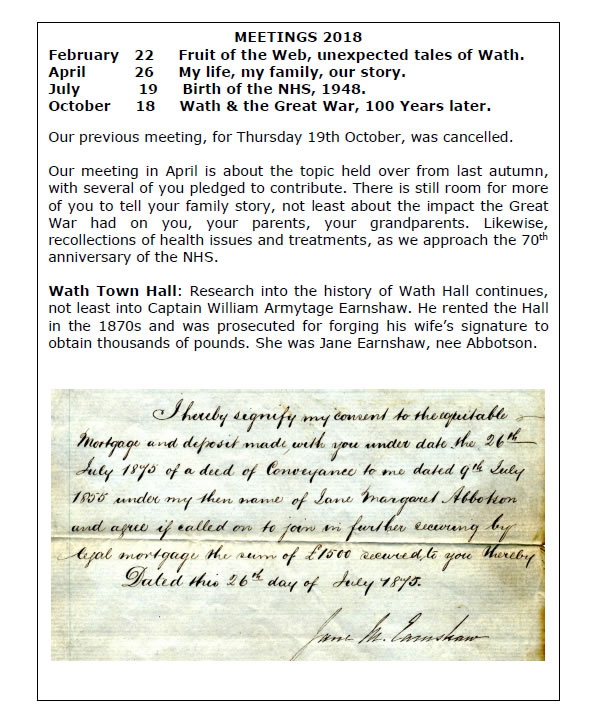 MEETINGS 2018
February 22 Fruit of the Web, unexpected tales of Wath.
April 26 My life, my family, our story.
July 19 Birth of the NHS, 1948.
October 18 Wath & the Great War, 100 Years later.
Our previous meeting, for Thursday 19th October, was cancelled.
Our meeting in April is about the topic held over from last autumn,
with several of you pledged to contribute. There is still room for more
of you to tell your family story, not least about the impact the Great
War had on you, your parents, your grandparents. Likewise,
recollections of health issues and treatments, as we approach the 70th
anniversary of the NHS.
Wath Town Hall: Research into the history of Wath Hall continues,
not least into Captain William Armytage Earnshaw. He rented the Hall
in the 1870s and was prosecuted for forging his wife’s signature to
obtain thousands of pounds. She was Jane Earnshaw, nee Abbotson.
I hereby signify my consent to the equitable
Mortgage and deposit made with you under date the 26th
July 1875 of a deed of Conveyance to me dated 9th July
1855 under my then name of Jane Margaret Abbotson
and agree if called on to join in further securing by
legal mortgage the sum of £1500 secured to you thereby
Dated this 26th day of July 1875.
Jane M. Earnshaw